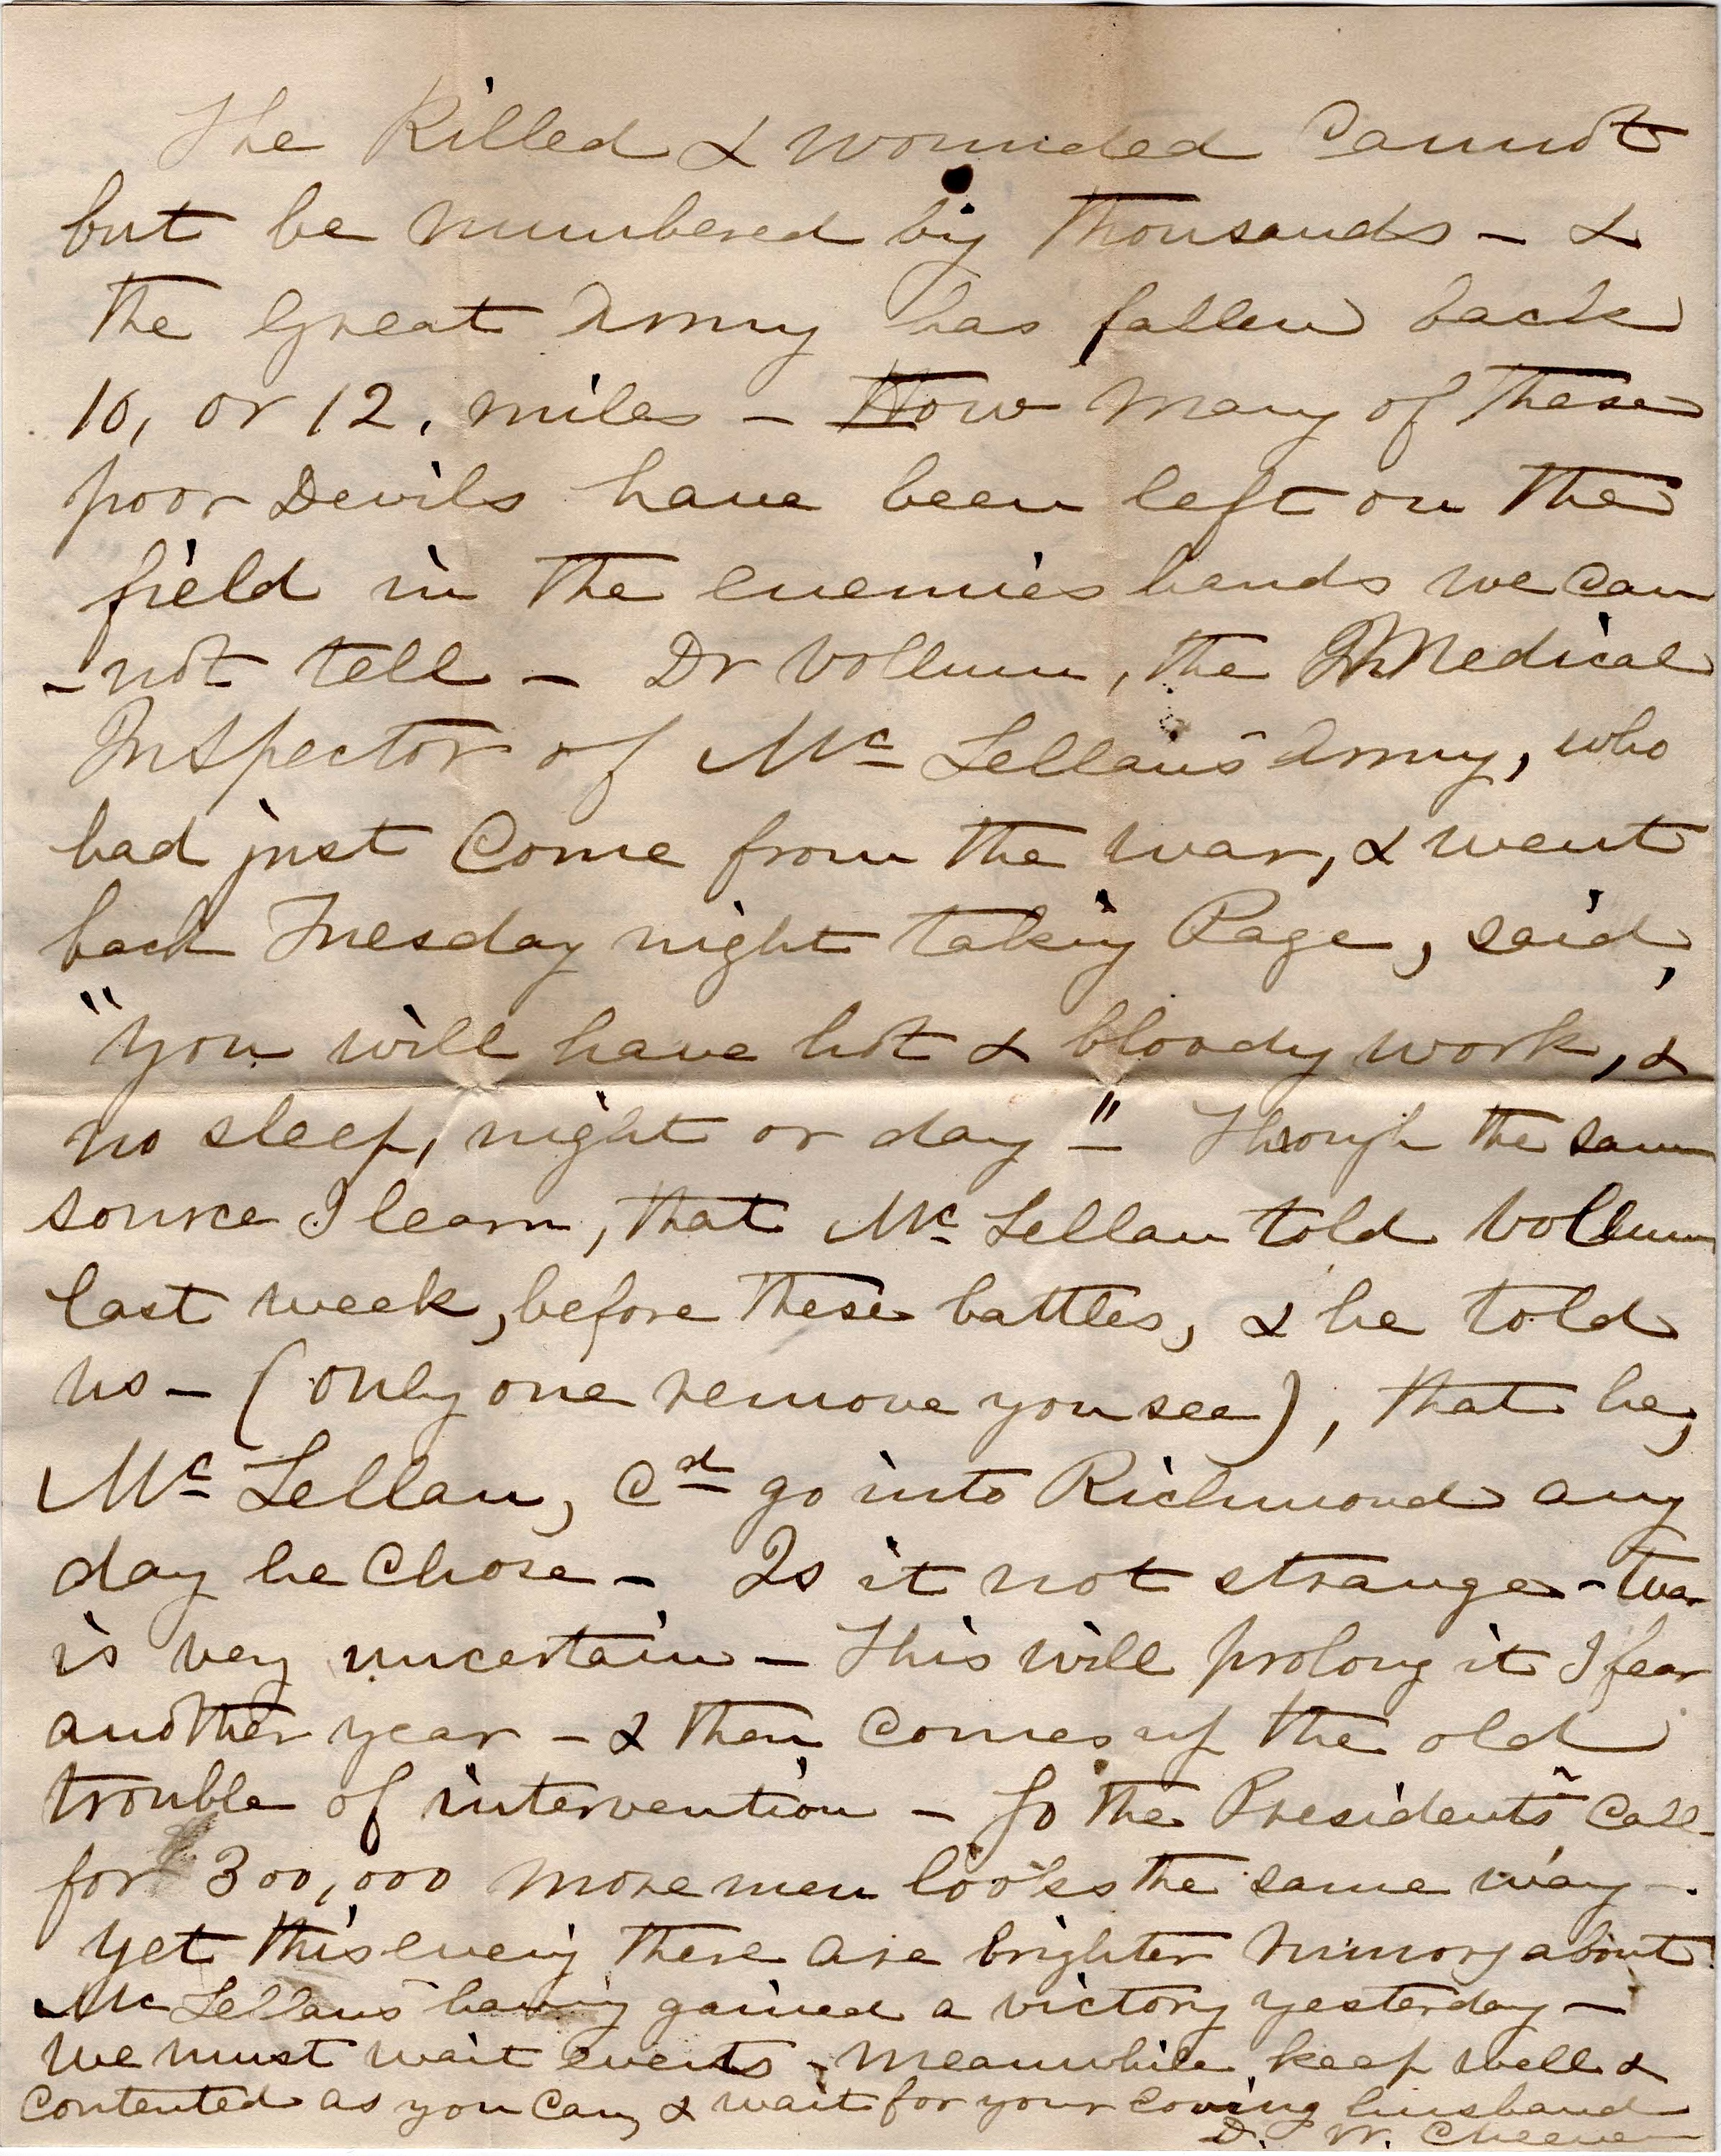 The Killed & wounded Cannot
but be numbered by Thousands - &
the Great Army has fallen back
10, or 12, miles - How many of these
poor Devils have been left on the
field in the enemies hands we can
-not tell - Dr Vollum, the Medical
Inspector of Mc Lellan's Army, who
had just Come from the war, & went
back Tuesday night taking Page, said,
"You will have hot & bloody work, &
no sleep, night or day" - Through the same
source I learn, that Mc Lellan told Vollum
last week, before these battles, & he told
us - (only one remove you see), that he,
Mc Lellan, Cd go into Richmond any
day he Chose - Is it not strange - War
is very uncertain - This will prolong it I fear
another year - & then Comes up the old
trouble of intervention - So the President's Call
for 300,000 more men looks the same way -.
Yet this eveng there are brighter rumors about
Mc Lellan's having gained a victory yesterday -
We must wait events - Meanwhile keep well &
Contented as you Can, & wait for your loving husband
D. W. Cheever